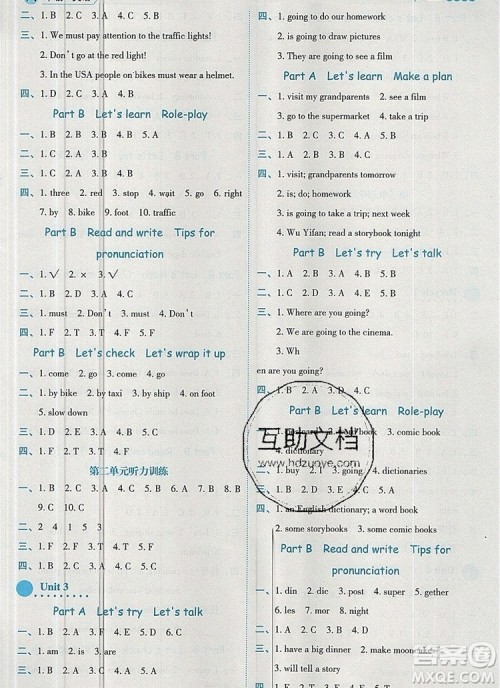 二、1. B 2. C 3. A 4. D 5. E
三、1. We must pay attention to the traffic lights!
2. Don't go at the red light!
3. In the USA people on bikes must wear a helmet.
四、1. D 2. C 3. A 4. B
Part B Let's learn Role-play
一、1. B 2. A 3. B 4. B 5. A
二、1. C 2. A 3. B
三、1. D 2. C 3. A 4. B
四、1. three 2. red 3. stop 4. wait 5. go 6. right
7. by 8. bike 9. foot 10. car
Part B Read and write Tips for
pronunciation
一、1. √ 2. × 3. √
二、1. B 2. D 3. A 4. C
三、1. must 2. Don't 3. must 4. Don't
四、1. T 2. F 3. T 4. F 5. F
Part B Let's check Let's wrap it up
一、1. come 2. go 3. go 4. come
二、1. by bike 2. by taxi 3. by ship 4. on foot
5. slow down
三、1. B 2. D 3. A 4. C
四、1. T 2. F 3. F 4. T
第二单元听力训练
一、1. B 2. C 3. A 4. B 5. C 6. A 7. A 8. B
9. C 10. C
二、2 4 1 5 3
三、1. F 2. F 3. T 4. T 5. T
四、1. B 2. B 3. A 4. C 5. C
Unit 3
Part A Let's try Let's talk
一、1. B 2. C 3. A 4. B
二、1. A 2. B 3. C 4. A
三、1. D 2. C 3. A 4. B
四、1. going to do our homework
2. is going to draw pictures
3. They are going to see a film
Part A Let's learn Make a plan
一、1. visit my grandparents 2. see a film
3. go to the supermarket 4. take a trip
二、1. B 2. A 3. B 4. C 5. A
三、1. D 2. C 3. B 4. A
四、1. visit; grandparents tomorrow
2. is; do; homework
3. is going to take a trip; next week
4. Wu Yifan; read a storybook tonight
Part B Let's try Let's talk
一、1. B 2. A 3. C 4. C
二、1. D 2. A 3. E 4. B 5. C
三、1. Where are you going?
2. We are going to the cinema.
3. Wh
en are you going?
四、1. B 2. A 3. D 4. C
Part B Let's learn Role-play
book 3. comic book
4. dictionary
二、1. buy 2. I 3. going 4. dictionaries
三、1. B 2. A 3. C
四、1. an English dictionary; a word book
2. some storybooks 3. some comic books
Part B Read and write Tips for
pronunciation
一、1. din 2. di 3. day 4. sus 5. gether
6. les 7. mor 8. night
二、1. D 2. C 3. A 4. B
三、1. have a big dinner 2. make
3. will tell a story
互助文档
www.hdzuoye.com
答案圈
MXQE.COM